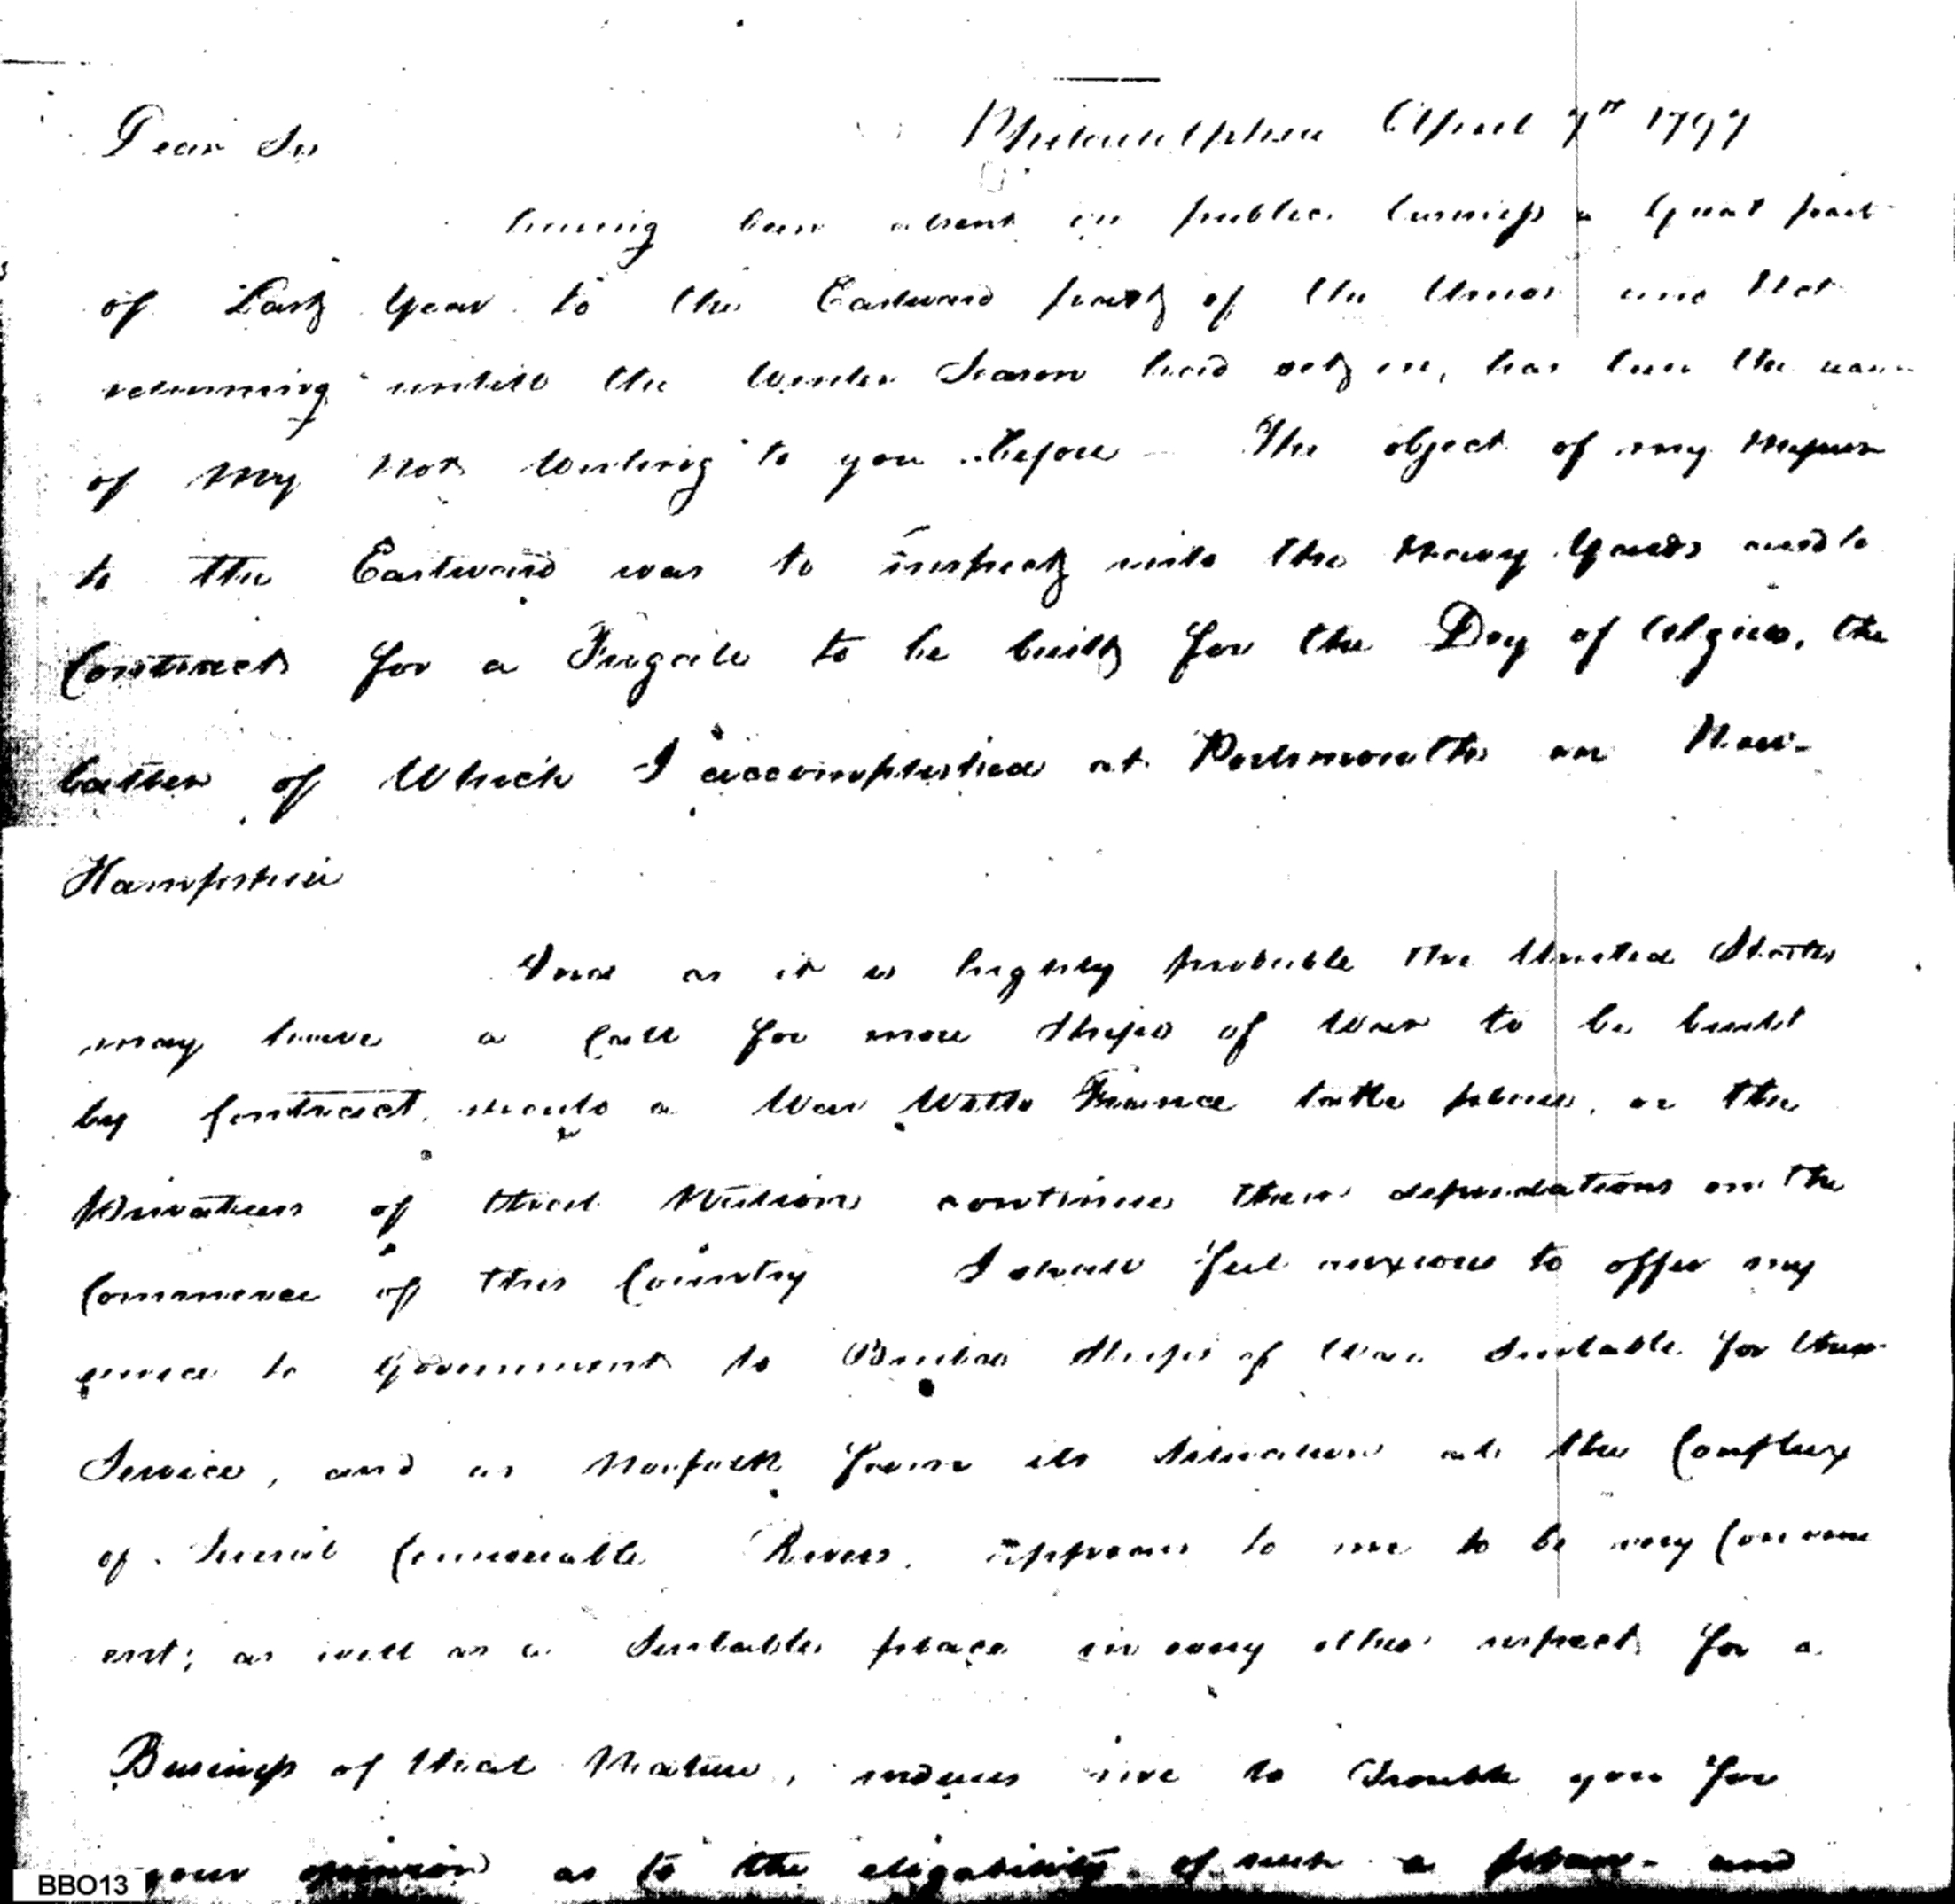 Philadelphia April 7th 1797
Dear Sir
having been absent on public business a great part
of Last Year to the Eastward part of the Union and Not
returning untill the Winter Season had set in, has been the cause
of My Not Writing to you before – The object of my
to the Eastward was to inspect into the Navy Yards and to
Contract for a Frigate to be built for the Dey of Algiers, the
latter of Which I accomplished at Portsmouth in New-
Hampshire
And as it is highly probable the United States
may have a Call for more Ships of War to be built
by Contract, should a War With France take place, or the
Privateers of that Nation continue their depredations on the
Commerce of this Country I shall feel anxious to offer my
service to Government to Build Ships of War Suitable for their
Service, and as Norfolk from its Situation at the Conflux
of Several Rivers, appears to me to be very Conveni
ent; as well as a Suitable place in every other respect for a
Business of that Nature, induces me to trouble you for
your opinion as to the eligability of such a plan – and
BBO13